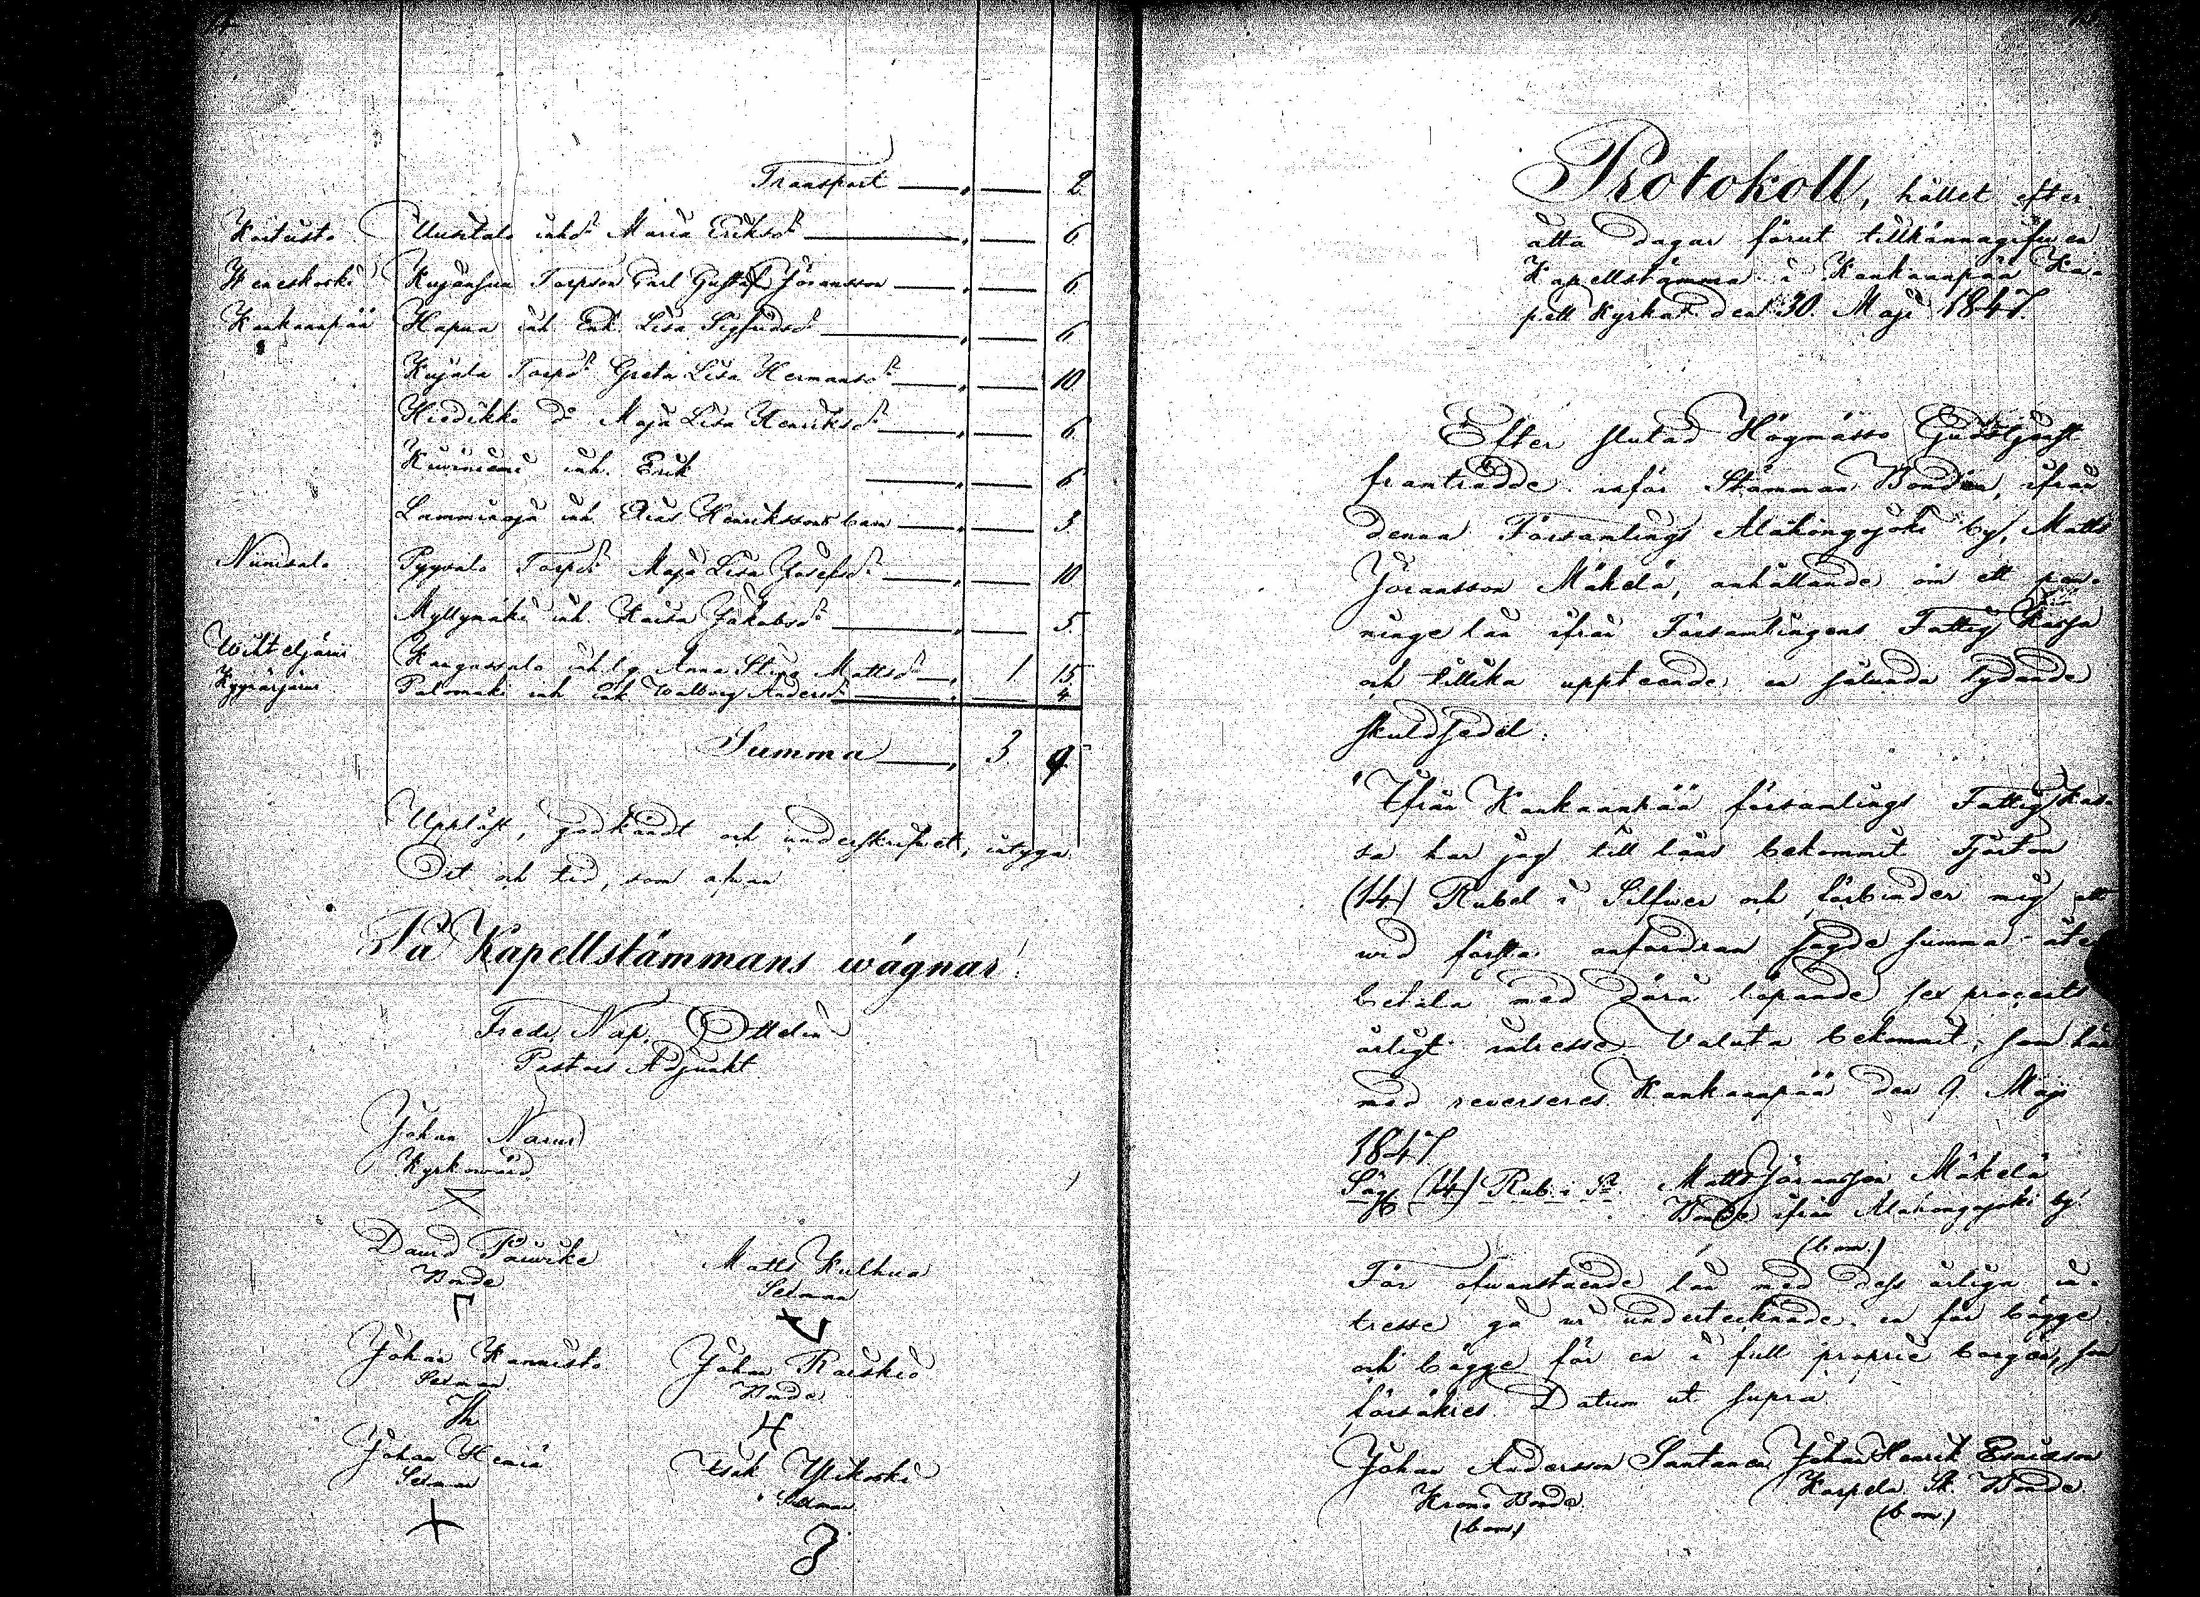 Transport — " — 2
Koitusto Uusitalo inhs Maria Eriksdr — " — 6
Weneskoski Kujansuu Torpson Carl Gustaf Jöransson — " — 6
Kankaanpää Hapua inh. Enk. Lisa Sigfridsdr — " — 6
Kujala Torpdr Greta Lisa Hermansdr — " — 10
Hiedikko do Maja Lisa Henriksdr — " — 6
Kuviniemi inh. Erik — " — 6
Lamminoja inh. Elias Henrikssons barn — " — 3
Niinisalo Pyysalo Torpdr Maja Lisa Josefsdr — " — 10
Myllymäki inh. Kaisa Jakobsdr — " — 5
Wihteljärvi Kangassalo inh. Anna Stina Mattsdr — " 1 15
Kyynärjärvi Palomäki inh. Enk. Walborg Andersdr — " — 4
Summa — " 3 9
Uppläst, godkändt och underskrifvet, intyga
Ort och tid, som ofvan
På Kapellstämmans wägnar:
Fredr. Nap. Ottelin
Pastors Adjunkt
Johan Narvi
Kyrkowärd
David Päiwike
Bonde
Matts Kulhua
Sexman
Johan Kannisto
Sexman
Johan Raiskio
Bonde
Johan Heniä
Sexman
Isak Ylikoski
Sexman
Protokoll, hållet efter
åtta dagar förut tillkännagifwen
Kapellstämma i Kankaanpää Ka-
pell Kyrka den 30. Maji 1847.
Efter slutad Högmässo Gudstjenst
framträdde inför Stämman Bonden, ifrån
denna Församlings Alahongojoki by, Matts
Jöransson Mäkelä, anhållande om ett pen-
ninge lån ifrån Församlingens Fattig Kassa
och tillika uppteende en sålunda lydande
skuldsedel:
"Ifrån Kankaanpää församlings Fattig kas-
sa har jag till låns bekommit Fjorton
(14) Rubel i Silfwer och förbinder mig att
wid första anfordran sagde summa åter
betala med därå löpande sex procents
årligt intresse. Valuta bekommit, som här
med reverseres. Kankaanpää den 9. Maji
1847.
Säg (14) Rub. i Sr. Matts Jöransson Mäkelä
Bonde ifrån Alahongojoki by.
(bom.)
För ofwanstående lån med dess årliga in-
tresse gå wi undertecknade en för bägge
och bägge för en i full proprie borgen, som
försäkres. Datum ut supra
Johan Andersson Santanen Johan Henrik Esaiasson
Krono Bonde. Karpela Sk. Bonde
(bom.) (bom.)